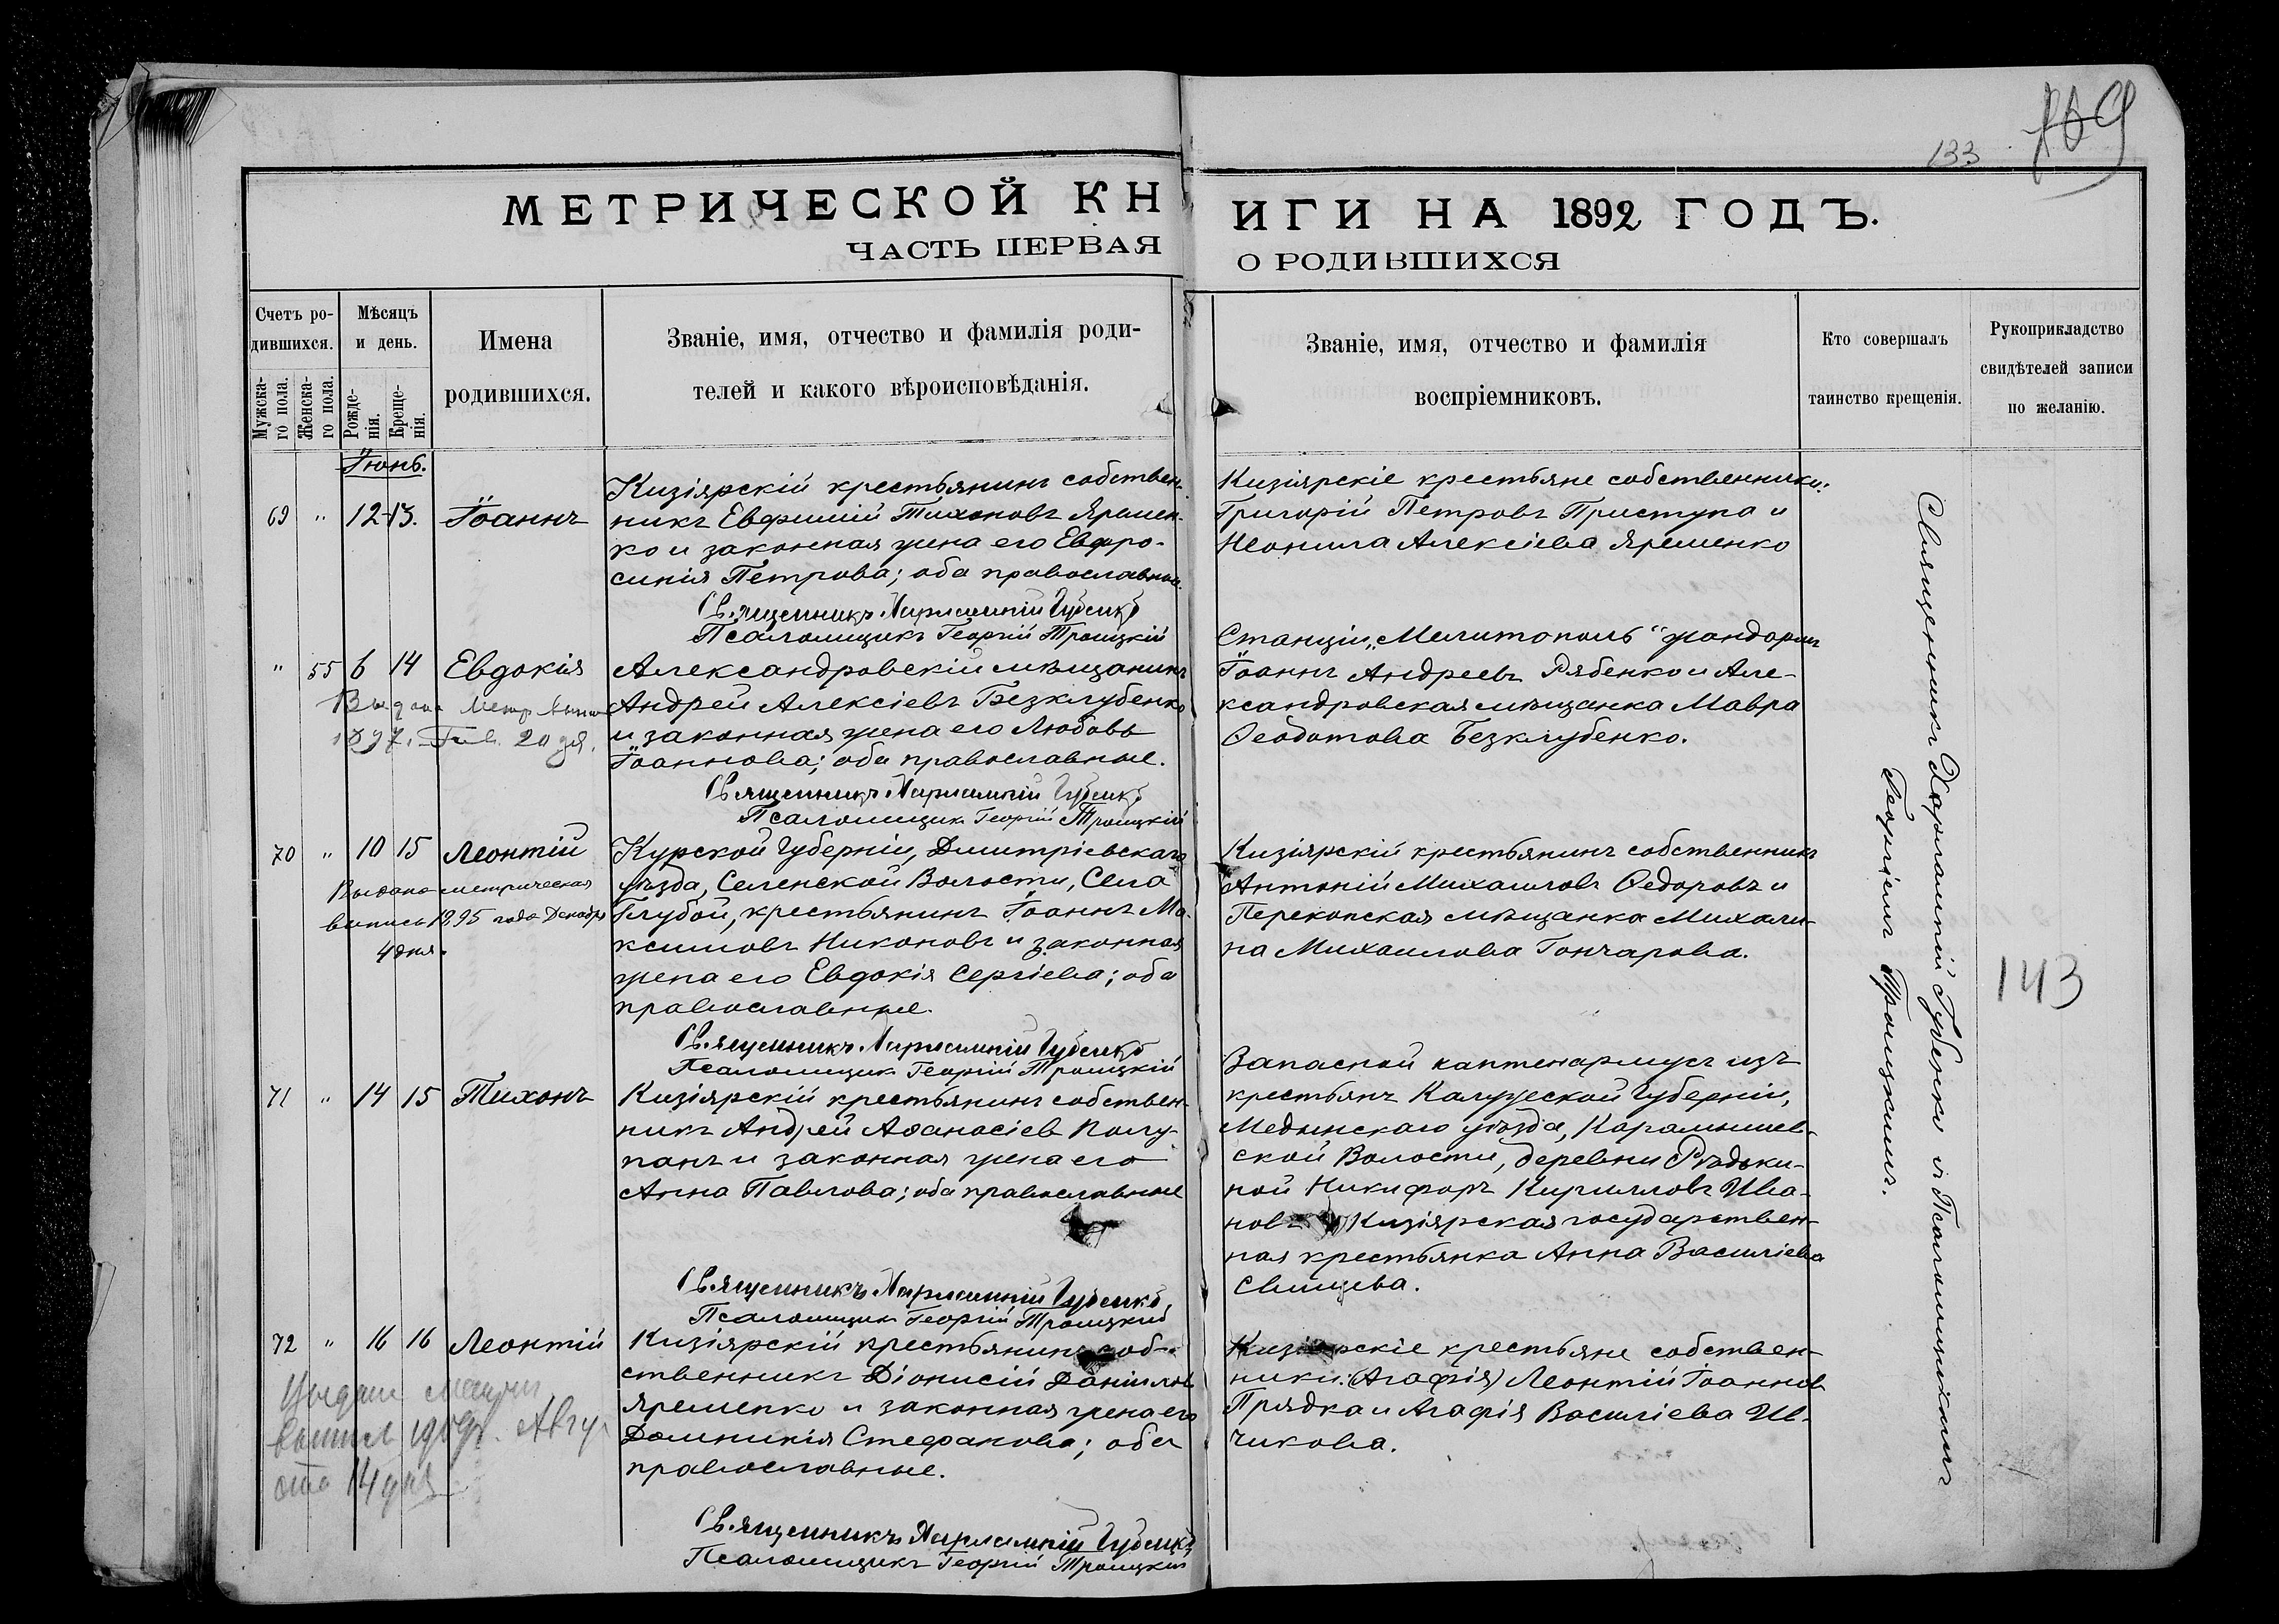 133
169
МЕТРИЧЕСКОЙ КНИГИ НА 1892 ГОДЪ.
ЧАСТЬ ПЕРВАЯ О РОДИВШИХСЯ
Счетъ ро-
дившихся.
Мужска-
го пола.
Женска-
го пола.
Мѣсяцъ
и день.
Рожде-
нія.
Креще-
нія.
Имена
родившихся.
Званіе, имя, отчество и фамилія роди-
телей и какого вѣроисповѣданія.
Званіе, имя, отчество и фамилія
воспріемниковъ.
Кто совершалъ
таинство крещенія.
Рукоприкладство
свидѣтелей записи
по желанію.
Іюнь.
69 " 12 13. Іоаннъ
Кизіярскій крестьянинъ собствен-
никъ Евфимій Тихоновъ Яремен-
ко и законная жена его Евфро-
синія Петрова; оба православные.
Священникъ Харлампій Губенко
Псаломщикъ Георгій Троицкій
Кизіярскіе крестьяне собственники:
Григорій Петровъ Приступа и
Неонила Алексіева Яременко
" 55 6 14 Евдокія
Выдана Метр.
1897 г. 20 дня.
Александровскій мѣщанинъ
Андрей Алексіевъ Безклубенко
и законная жена его Любовь
Іоаннова; оба православные.
Священникъ Харлампій Губенко
Псаломщикъ Георгій Троицкій
Станціи „Мелитополь" жандармъ
Іоаннъ Андреевъ Рябенко и Але-
ксандровская мѣщанка Мавра
Ѳеодотова Безклубенко.
70 " 10 15 Леонтій
Выдана метрическая
выпись 1895 года Декабря
4 дня.
Курской Губерніи, Дмитріевскаго
уѣзда, Селенской Волости, Села
Глубой, крестьянинъ Іоаннъ Ма-
ксимовъ Никоновъ и законная
жена его Евдокія Сергіева; оба
православные.
Священникъ Харлампій Губенко
Псаломщикъ Георгій Троицкій
Кизіярскій крестьянинъ собственникъ
Антоній Михаиловъ Ѳедоровъ и
Перекопская мѣщанка Михали-
на Михаилова Гончарова.
71 " 14 15 Тихонъ
Кизіярскій крестьянинъ собствен-
никъ Андрей Аѳанасіевъ Полу-
панъ и законная жена его
Анна Павлова; оба православные
Священникъ Харлампій Губенко,
Псаломщикъ Георгій Троицкій
Запасной каптенармусъ изъ
крестьянъ Калужской Губерніи,
Медынскаго уѣзда, Карамышев-
ской Волости, деревни Рѣдьки-
ной Никифоръ Кирилловъ Ива-
новъ и Кизіярская государствен-
ная крестьянка Анна Василіева
72 " 16 16 Леонтій
Выдана метрич.
выпись 1909 г. Авгу-
ста 14 дня
Кизіярскій крестьянинъ соб-
ственникъ Діонисій Даніиловъ
Яременко и законная жена его
Домникія Стефанова; оба
православные.
Священникъ Харлампій Губенко
Псаломщикъ Георгій Троицкій
Кизіярскіе крестьяне собствен-
ники: (Агафія) Леонтій Іоанновъ
Прядка и Агафія Василіева Ив-
чикова.
Священникъ Харлампій Губенко и Псаломщикомъ
Георгіемъ Троицкимъ.
143